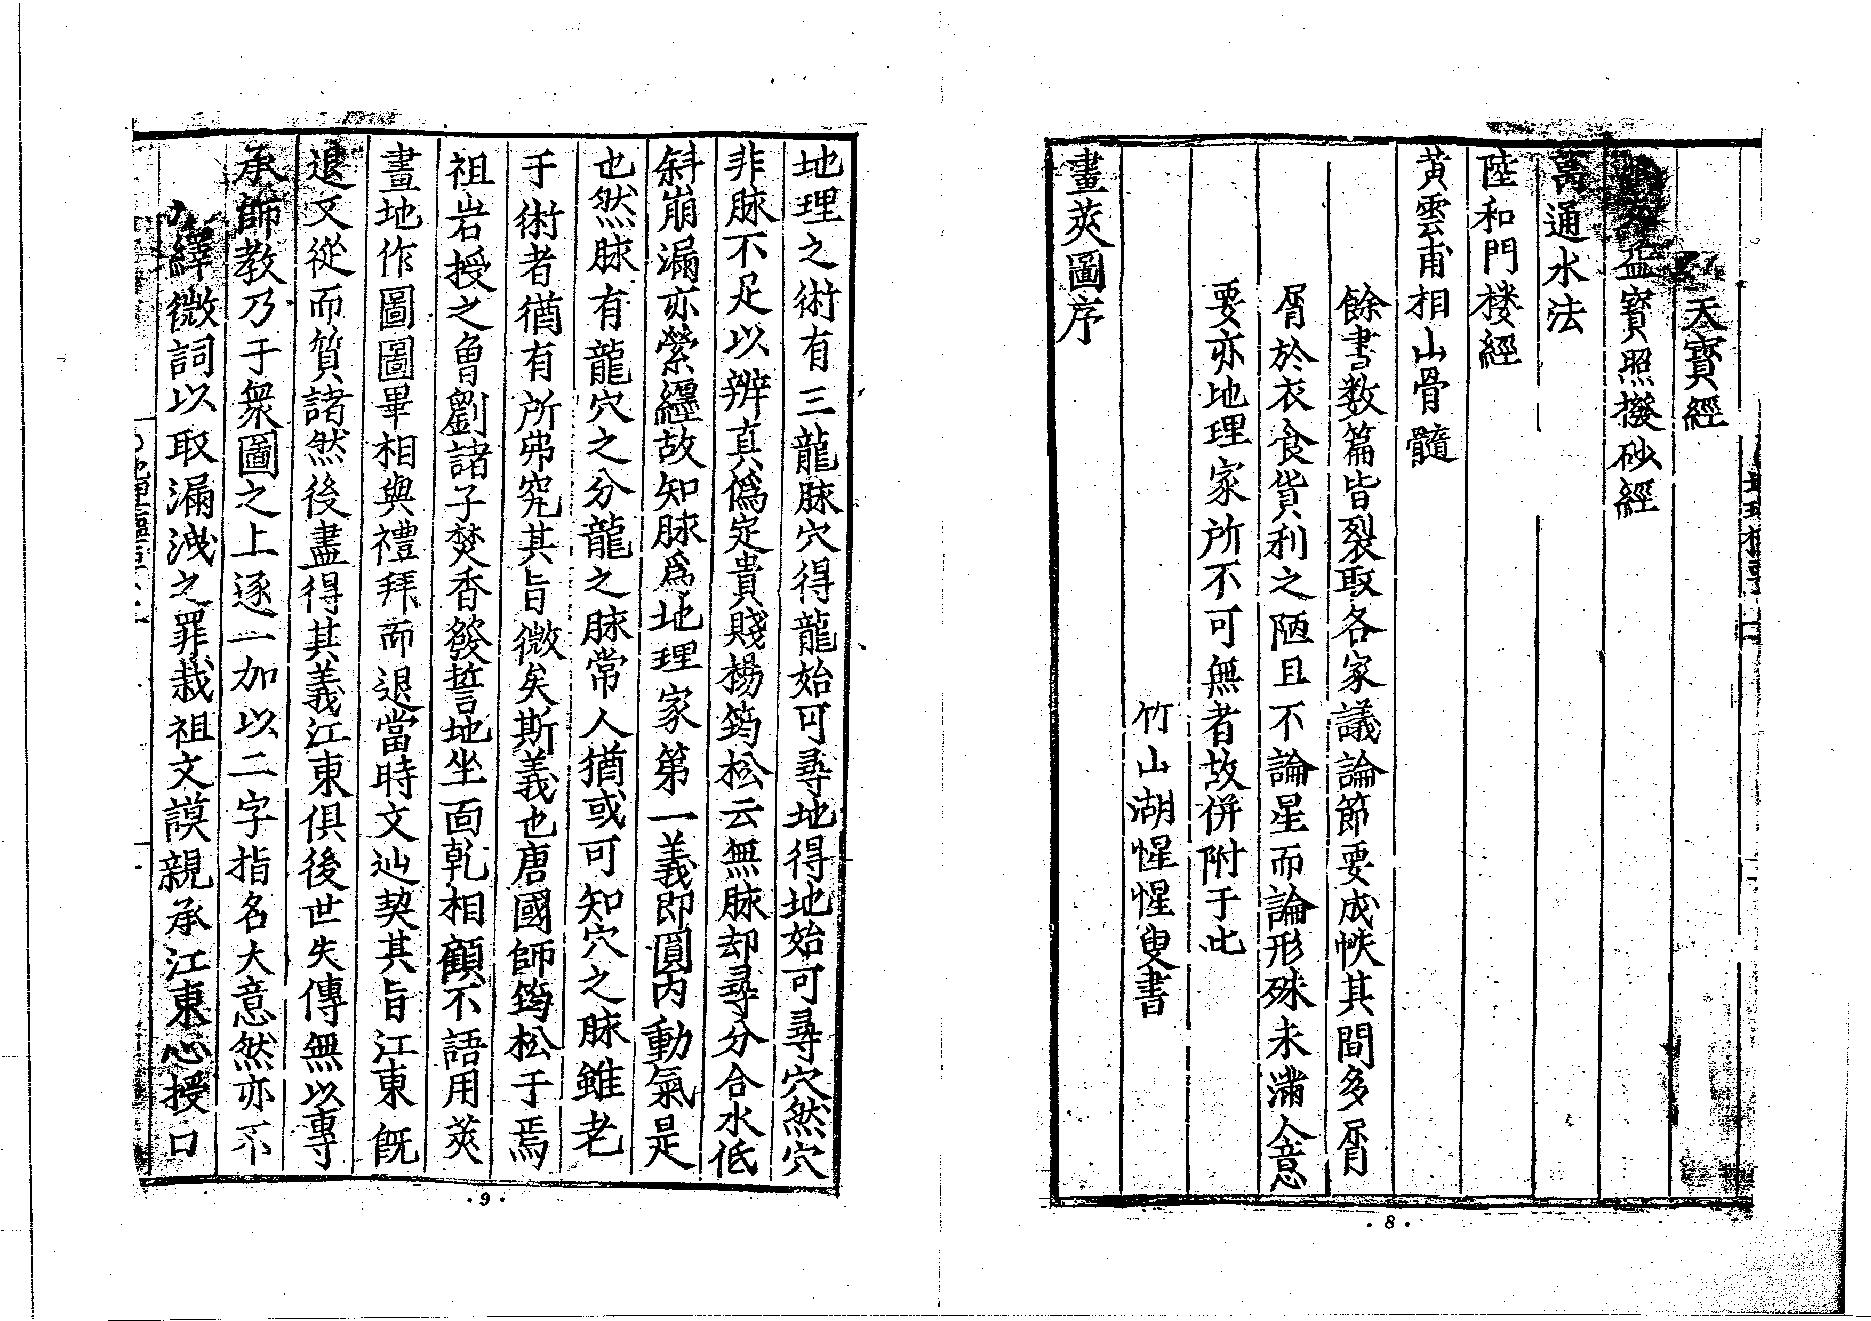 天寳經
盃寳照撥砂經
萬通水法
陸和門楼經
黃雲甫相山骨髓
餘書数篇皆裂取各家議論節要成帙其間多屑
屑於衣食貨利之陋且不論星而論形殊未滿人意
要亦地理家所不可無者故併附于此
竹山湖惺惺叟書
畫莢圖序
·8·
地理之術有三龍脉穴得龍始可尋地得地始可尋穴然穴
非脉不足以辨真偽定貴賤楊筠松云無脉却尋分合水低
斜崩漏亦縈纒故知脉爲地理家第一義即圓内動氣是
也然脉有龍穴之分龍之脉常人猶或可知穴之脉雖老
于術者猶有所弗究其旨微矣斯義也唐國師筠松于焉
祖岩授之曾劉諸子焚香發誓地坐面乾相顧不語用莢
畫地作圖圖畢相與禮拜而退當時文辿契其旨江東既
退又從而質諸然後盡得其義江東俱後世失傳無以專
承師教乃于衆圖之上逐一加以二字指名大意然亦不
繹微詞以取漏洩之罪栽祖文謨親承江東心授口
·9·